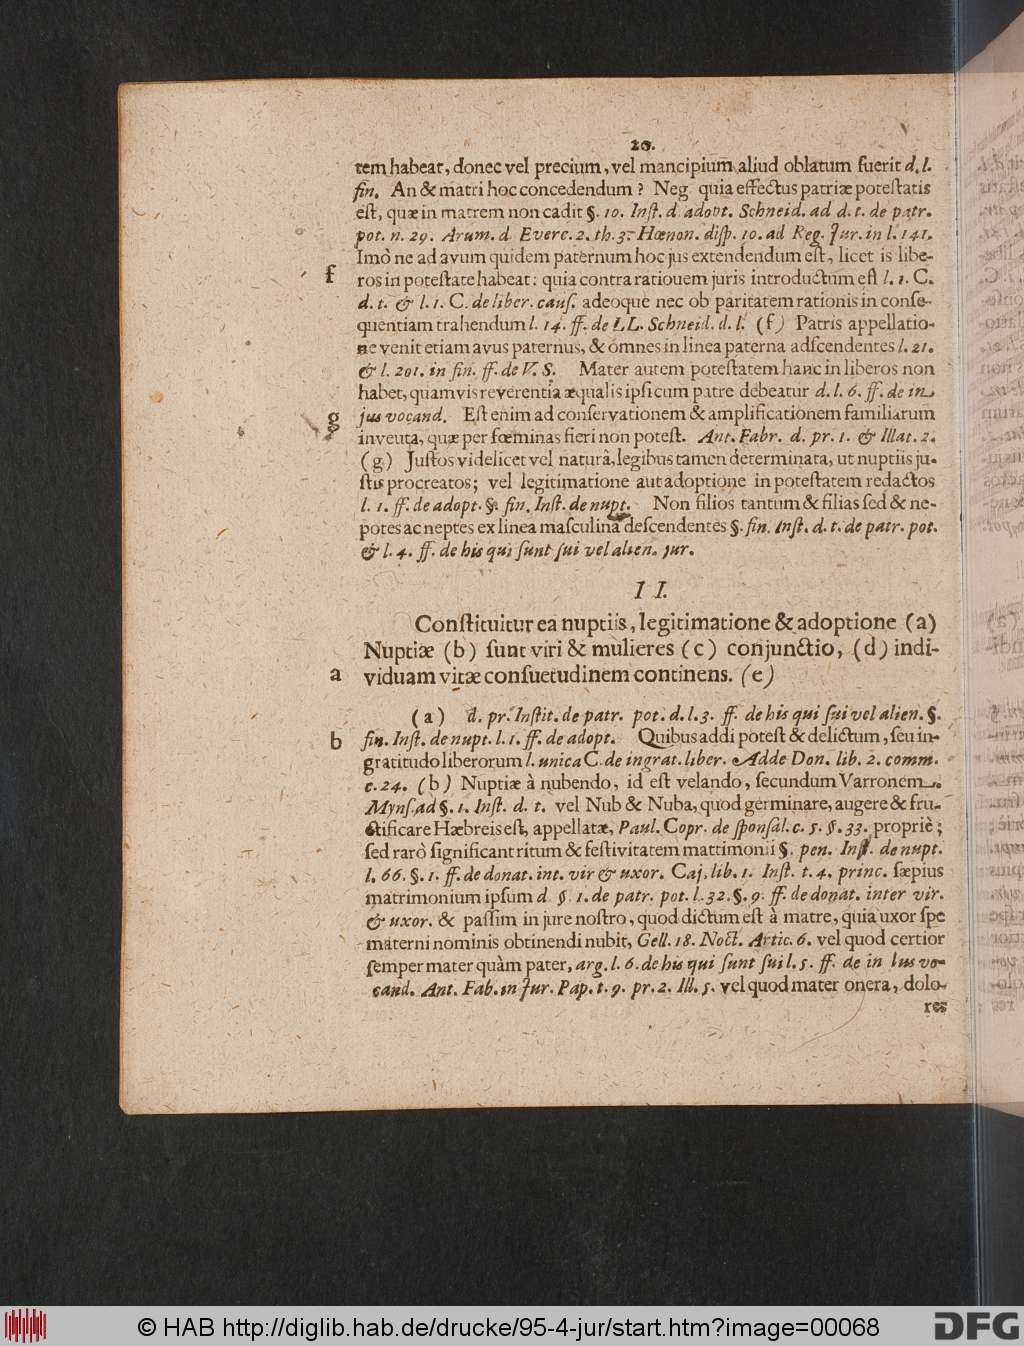 20.
tem habeat, donec vel precium, vel mancipium aliud oblatum fuerit d. l.
fin. An & matri hoc concedendum? Neg quia effectus patriæ potestatis
est, quæ in matrem non cadit §. 10. Inst. d. adopt. Schneid. ad d. t. de patr.
pot. n. 29. Arum. d. Exerc. 2. th. 3. Hœnon. disp. 10. ad Reg. Jur. in l. 141.
Imò ne ad avum quidem paternum hoc jus extendendum est, licet is libe-
f
ros in potestate habeat: quia contra ratiouem juris introductum est l. 1. C.
d. t. & l. 1. C. de liber. caus. adeoque nec ob paritatem rationis in conse-
quentiam trahendum l. 14. ff. de LL. Schneid. d. l. (f) Patris appellatio-
ne venit etiam avus paternus, & omnes in linea paterna adscendentes l. 21.
& l. 201. in fin. ff. de V. S. Mater autem potestatem hanc in liberos non
habet, quamvis reverentia æqualis ipsi cum patre debeatur d. l. 6. ff. de in
g
jus vocand. Est enim ad conservationem & amplificationem familiarum
inveuta, quæ per fœminas fieri non potest. Ant. Fabr. d. pr. 1. & Illat. 2.
(g) Justos videlicet vel naturâ, legibus tamen determinata, ut nuptiis ju-
stis procreatos; vel legitimatione aut adoptione in potestatem redactos
l. 1. ff. de adopt. §. fin. Inst. de nupt. Non filios tantum & filias sed & ne-
potes ac neptes ex linea masculina descendentes §. fin. Inst. d. t. de patr. pot.
& l. 4. ff. de his qui sunt sui vel alien. jur.
II.
Constituitur ea nuptiis, legitimatione & adoptione (a)
Nuptiæ (b) sunt viri & mulieres (c) conjunctio, (d) indi-
a
viduam vitæ consuetudinem continens. (e)
(a) d. pr. Instit. de patr. pot. d. l. 3. ff. de his qui sui vel alien. §.
b
fin. Inst. de nupt. l. 1. ff. de adopt. Quibus addi potest & delictum, seu in-
gratitudo liberorum l. unica C. de ingrat. liber. Adde Don. lib. 2. comm.
c. 24. (b) Nuptiæ à nubendo, id est velando, secundum Varronem.
Myns. ad §. 1. Inst. d. t. vel Nub & Nuba, quod germinare, augere & fru-
ctificare Hæbreis est, appellatæ, Paul. Copr. de sponsal. c. 5. §. 33. propriè;
sed rarò significant ritum & festivitatem matrimonii §. pen. Inst. de nupt.
l. 66. §. 1. ff. de donat. int. vir & uxor. Caj. lib. 1. Inst. t. 4. princ. sæpius
matrimonium ipsum d. §. 1. de patr. pot. l. 32. §. 9. ff. de donat. inter vir.
& uxor. & passim in jure nostro, quod dictum est à matre, quia uxor spe
materni nominis obtinendi nubit, Gell. 18. Noct. Artic. 6. vel quod certior
semper mater quàm pater, arg. l. 6. de his qui sunt sui l. 5. ff. de in Ius vo-
cand. Ant. Fab. in Jur. Pap. t. 9. pr. 2. Ill. 5. vel quod mater onera, dolo-
res
© HAB http://diglib.hab.de/drucke/95-4-jur/start.htm?image=00068
DFG